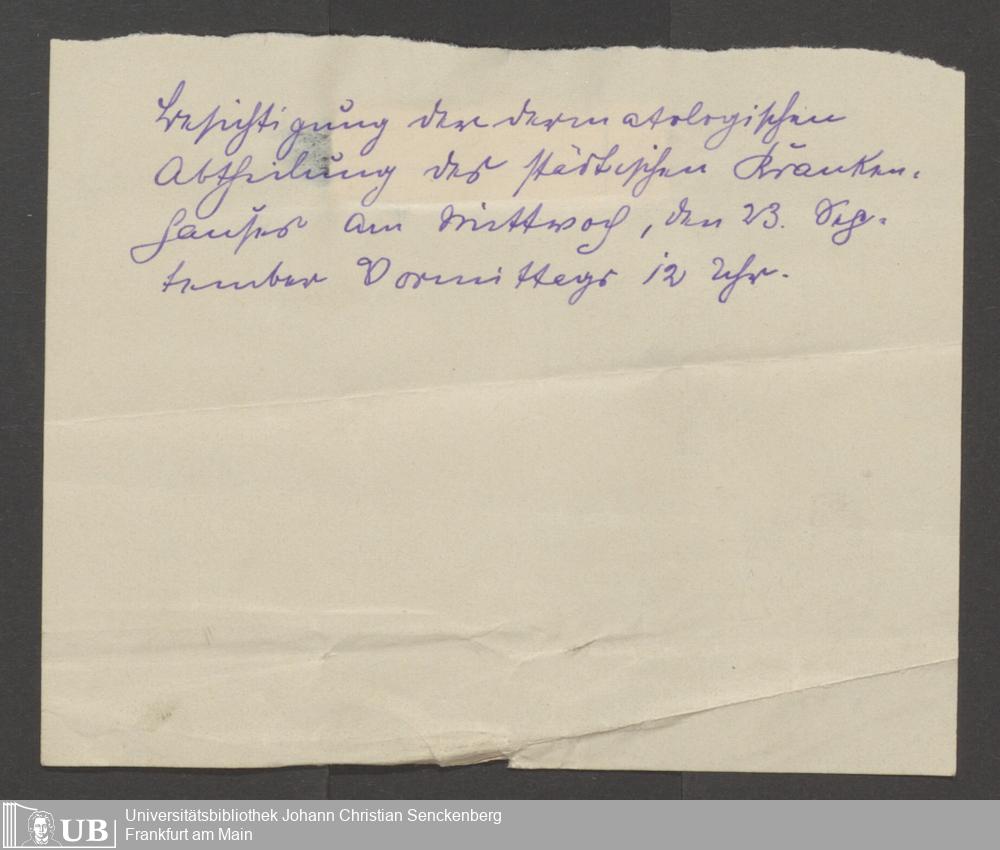 Besichtigung der dermatologischen
Abtheilung des städtischen Kranken-
hauses am Mittwoch, den 23. Sep-
tember Vormittags 12 Uhr.
UB
Universitätsbibliothek Johann Christian Senckenberg
Frankfurt am Main